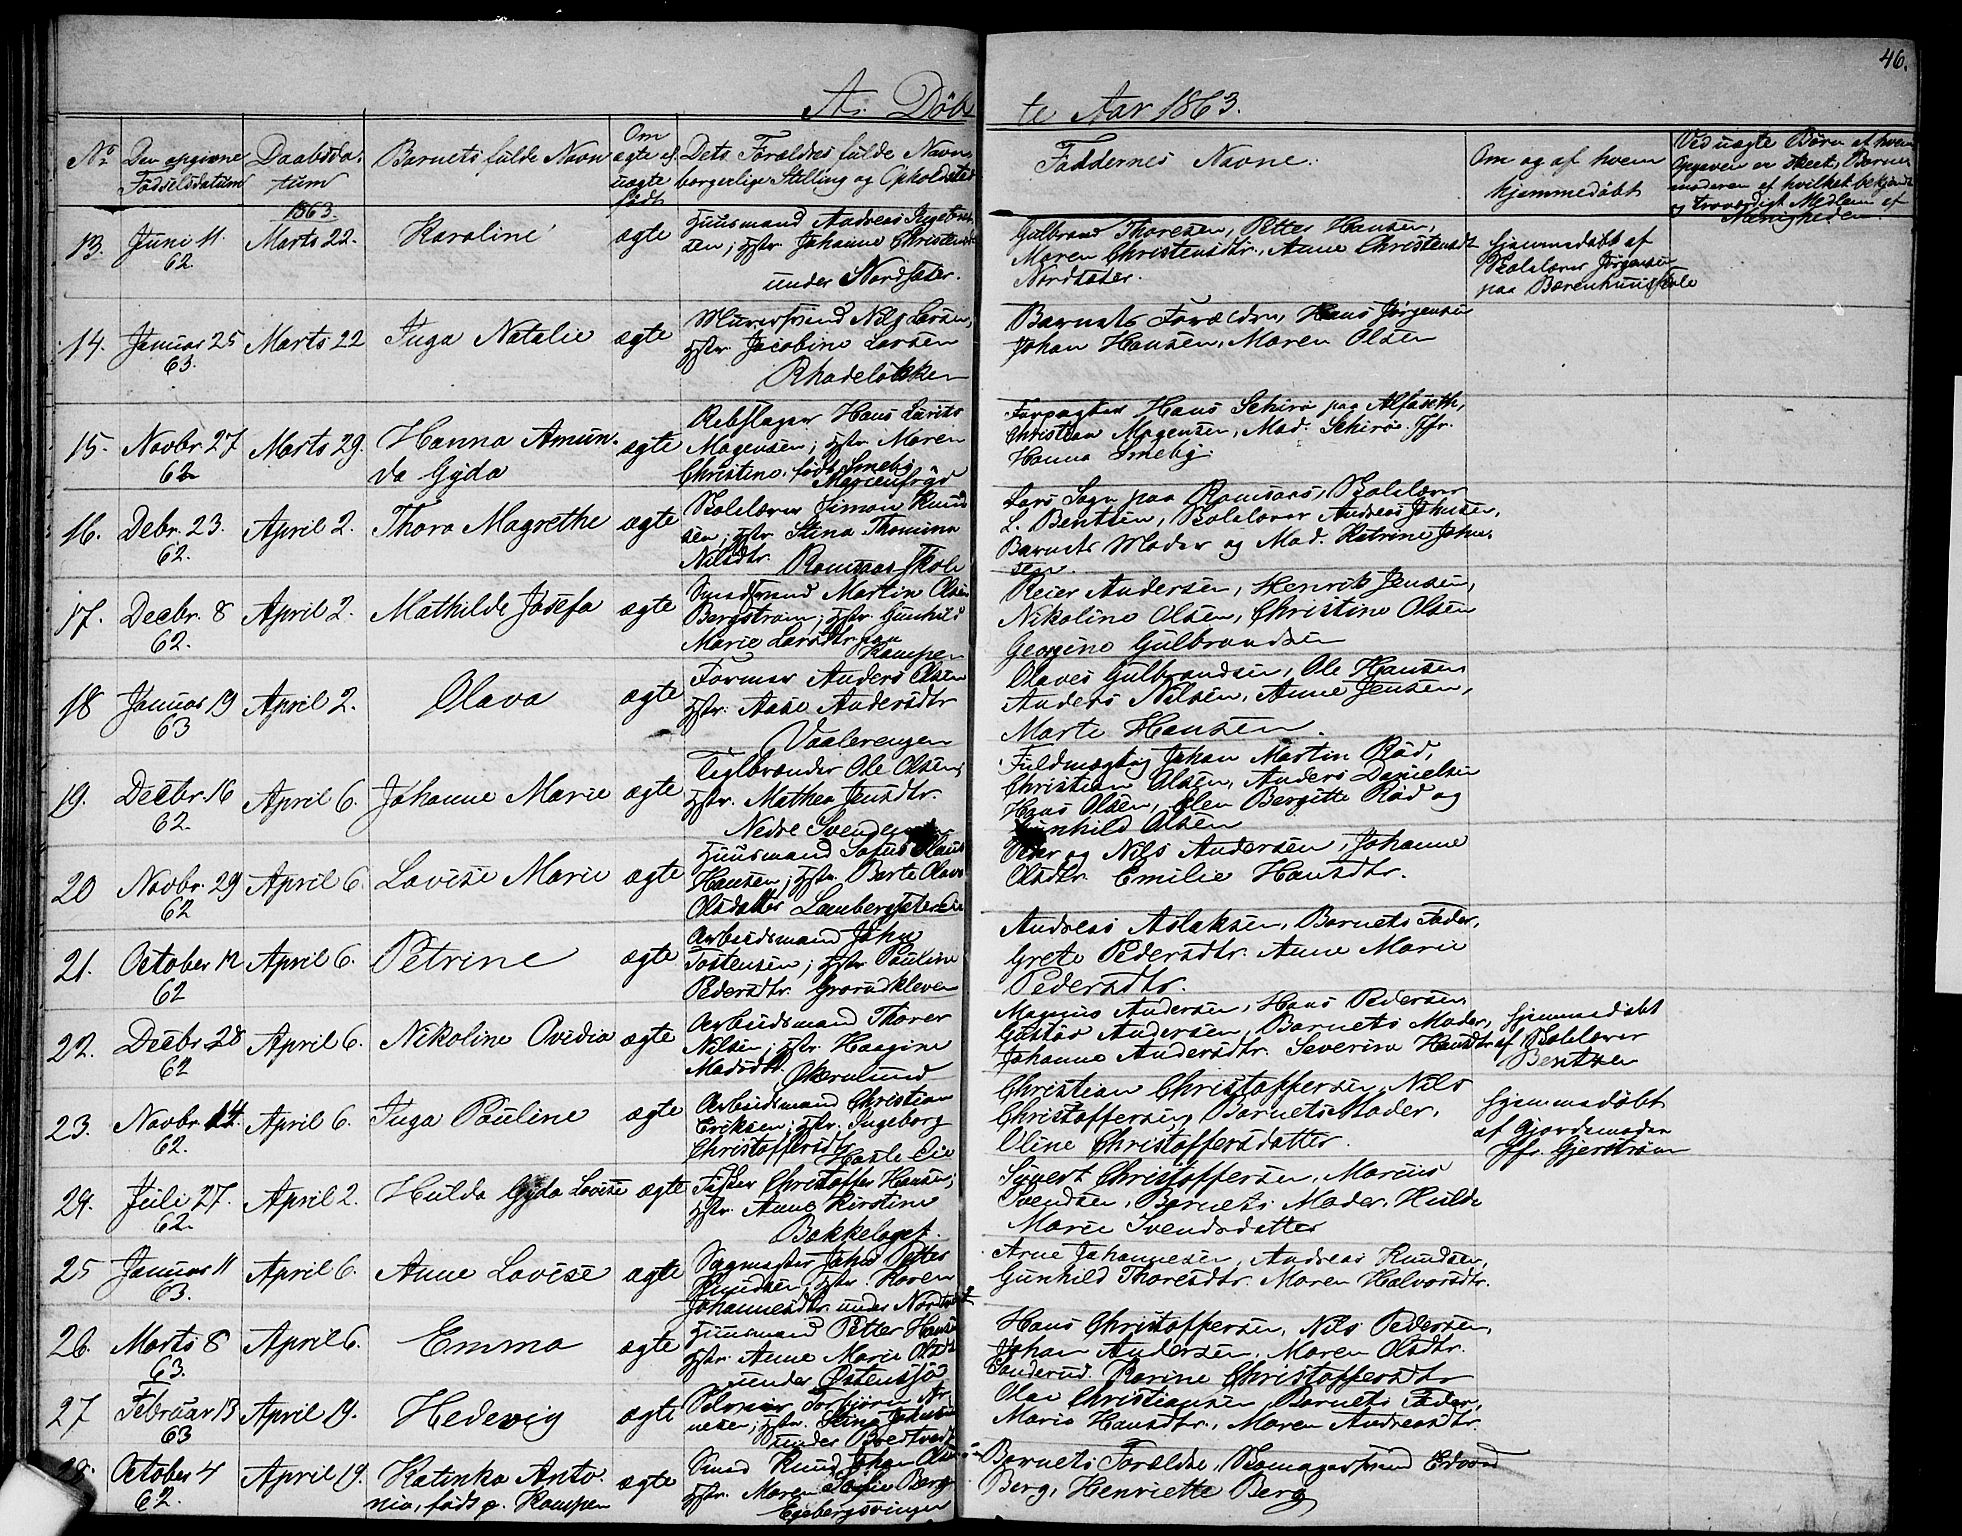 46.
A. Döbte Aar 1863.
No
Den opgivne Fødselsdatum
Daabsdatum
Barnets fulde Navn
Om ægte el uægte født
Dets Forældres fulde Navn borgerlige Stilling og Opholdsted
Faddernes Navne.
Om og af hvem hjemmedøbt
Ved uægte Børn af hvem Opgaven er skeet, Barnemoderen el hvilket bekjendt og troværdigt Medlem af Menigheden.
1863.
13. Juni 11. 62. Marts 22. Karoline ægte
Huusmand Andreas Ingebretsen; Hstr. Johanne Christensdtr
under Nordsæter.
Gulbrand Thoresen, Petter Hansen,
Maren Christensdtr., Anne Christensdt
Nordsæter.
hjemmedøbt af
Skolelærer Jørgensen
paa Bærenhuusskole
14. Januar 25 63. Marts 22 Inga Natalie ægte
Muursvend Nils Larsen,
Hstr. Jacobine Larsen
Rhodeløkken
Barnets Forældre, Hans Jørgensen
Johan Hansen, Maren Olsen
15. Novbr. 27 62 Marts 29. Hanna Amunda Gyda ægte
Rebslager Hans Lurits
Mogensen; Hstr. Maren
Christine, født Smeby
Marienfryd
Forpagter Hans Schirø paa Alfaseth,
Christian Mogensen, Mad. Schirøe. Jfr.
Hanna Smeby.
16. Debr. 23. 62. April 2. Thora Magrethe ægte
Skolelærer Simon Knudsen; Hstr. Stina Thomina
Nilsdtr. Romsaas Skole
Lars Sogn paa Romsaas, Skolelærer
L. Bentsen, Skolelærer Andreas Johnsen,
Barnets Moder og Mad. Katrine Johnsen.
17. Decbr. 8 62. April 2. Mathilde Josefa ægte
Smedsvend Martin Olsen
Bergstrøm; Hstr. Gunhild
Marie Larsdtr. paa
Kampen
Reier Andersen, Henrik Jensen,
Nikoline Olsen, Christine Olsen
Georgine Gulbrandsen
18 Januar 19 63 April 2. Olava ægte
Former Anders Olsen
Hstr. Aase Andersdtr
Vaalerengen
Olaves Gulbrandsen, Ole Hansen
Anders Nilsen, Anne Jensen,
Marte Hansen.
19. Decbr. 16 62. April 6. Johanne Marie ægte
Teglbrænder Ole Olsen,
Hstr. Mathea Jensdtr.
Nedre
Fuldmægtig Johan Martin Rød,
Christian Olsen, Anders Danielsen
Hans Olsen, Elen Bergitte Rød og
Gunhild Olsen
20 Novbr. 29 62 April 6. Lovise Marie ægte
Huusmand Sofus Olaus
Hansen; Hstr. Berte Olava
Olsdatter Lambergsetereie
Peter og Nils Andersen, Johanne
Olsdtr. Emilie Hansdtr.
21. October 12 62 April 6. Petrine ægte
Arbeidsmand John
Tostensen; Hstr. Pauline
Pedersdtr. Grorudkleven
Andreas Aslaksen, Barnets Fader,
Grete Pedersdtr. Anne Marie
Pedersdtr.
22. Decbr. 28 62 April 6. Nikoline Ovedia ægte
Arbeidsmand Thorer
Nilsen; Hstr. Haagine
Madsdtr. Økernlund
Magnus Andersen, Hans Pedersen
Gustav Andersen, Barnets Moder,
Johanne Andersdtr. Severine Hansdtr
hjemmedøbt
af Skolelærer
Bentsen
23. Novbr. 14. 62. April 6. Inga Pauline ægte
Arbeidsmand Christian
Eriksen; Hstr. Ingeborg
Christoffersdtr
Hasle Eie
Christian Christoffersen, Nils
Christoffersen, Barnets Moder,
Oline Christoffersdatter.
hjemmedøbt
af Gjordemoder
Jfr. Gjerstrøm
24. Juli 27. 62. April 2. Hulda Gyda Lovise ægte
Fisker Christoffer Hansen;
Hstr. Anne Kirstine
Bækkelaget
Syvert Christoffersen, Marcus
Svendsen, Barnets Moder, Hulda
Marie Svendsdatter
25 Januar 11 63. April 6. Anne Lovise ægte
Sagmester John Petter
Knudsen; Hstr. Karen
Johannesdtr. under Nordtvedt
Arne Johannesen, Andreas Knudsen,
Gunhild Thoresdtr. Maren Halvorsdtr.
26. Marts 8 63. April 6. Emma ægte
Huusmand Petter Hansen
Hstr. Anne Marie Olsdt
under Østensjø
Hans Christoffersen, Nils Pedersen,
Johan Andersen, Maren Olsdtr.
Sanderud. Karine Christoffersdtr
27 Februar 13 63 April 19. Hedevig ægte
Torbjørn Arnesen; Hstr. Stina
under Bredtvedt
Olav Christiansen, Barnets Fader,
Marie Hansdtr., Maren Andreasdtr.
28. October 4 62. April 19. Katinka Antonia, født p. Kampen ægte
Smed Knud Johan
Hstr. Maren Sofie Berg
Egebergsvingen
Barnets Forældre, Skomagersvend Edvard
Berg, Henriette Berg